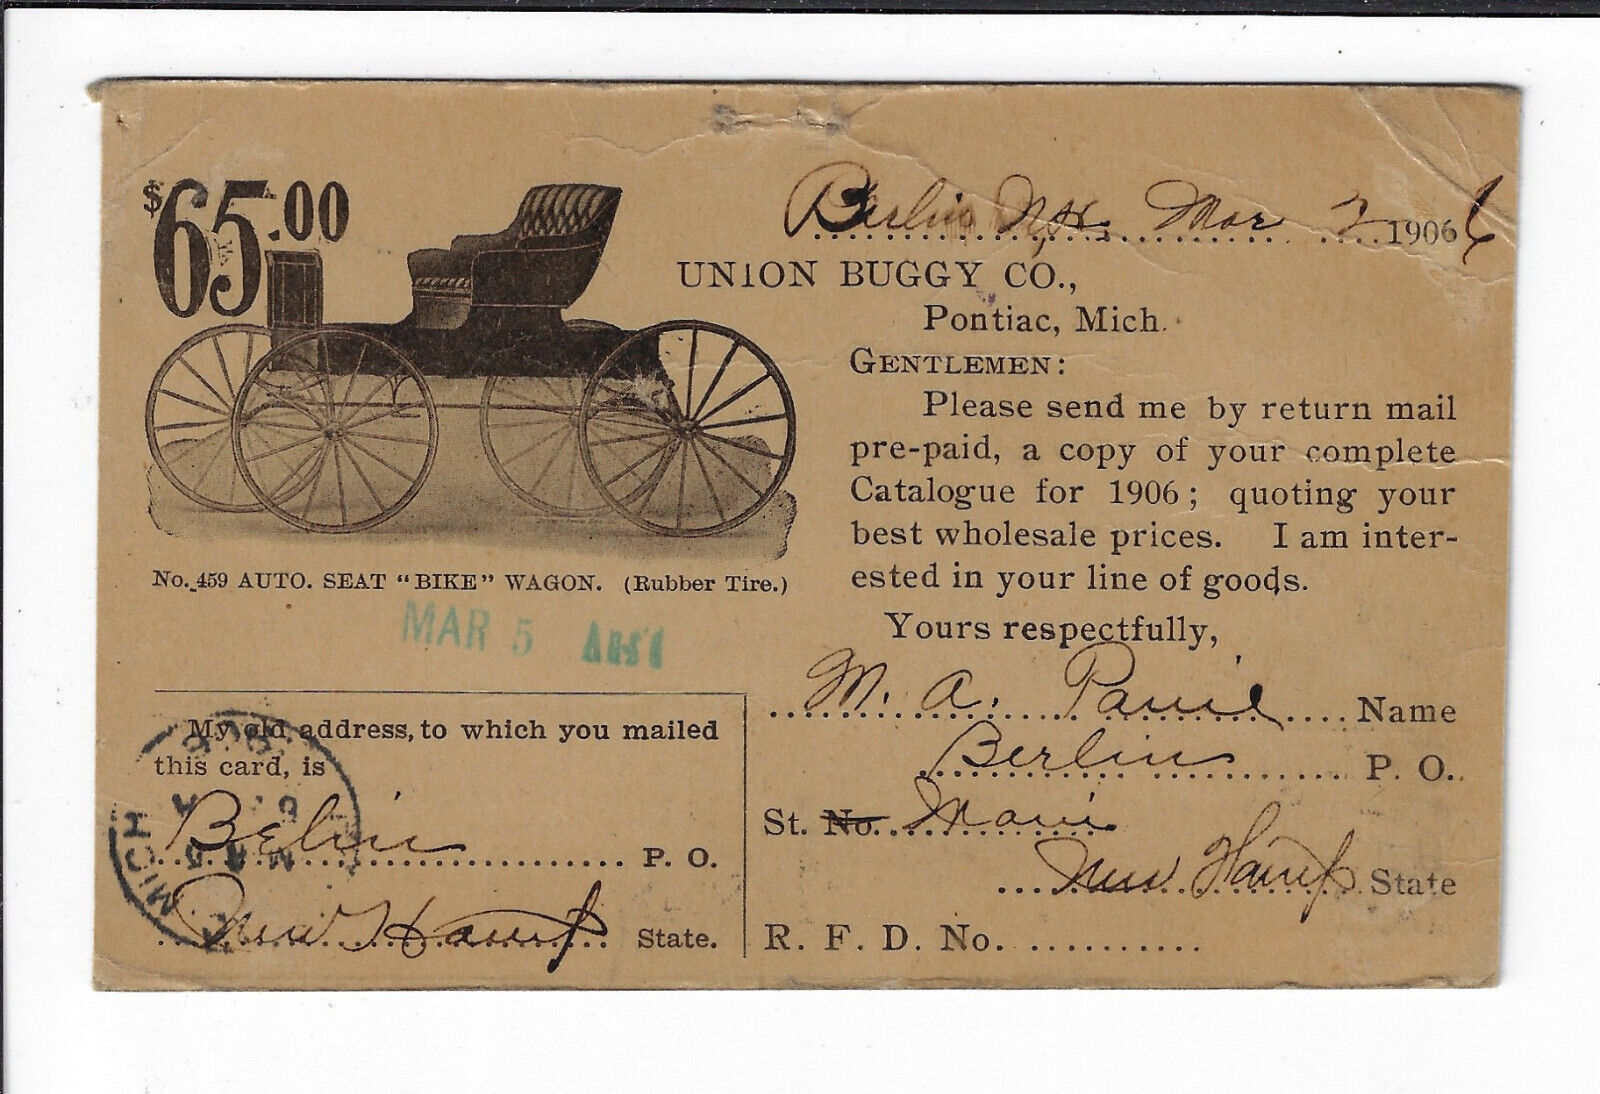 $65.00
Berlin N.H. Mar 2 1906 6
UNION BUGGY CO.,
Pontiac, Mich.
GENTLEMEN:
Please send me by return mail
pre-paid, a copy of your complete
Catalogue for 1906; quoting your
best wholesale prices. I am inter-
ested in your line of goods.
Yours respectfully,
M. A. Name
Berlin P. O.
St. No. Main
New Hamp State
R. F. D. No.
No. 459 AUTO. SEAT "BIKE" WAGON. (Rubber Tire.)
MAR 5
My old address, to which you mailed
this card, is
Belin P. O.
New Hamp State.
MICH